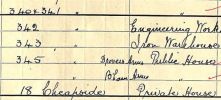 340+341
342 Engineering Work
343 Iron Warehouse
345 Drovers Arms Public House
B Lane Arms
18 Cheapside Private House